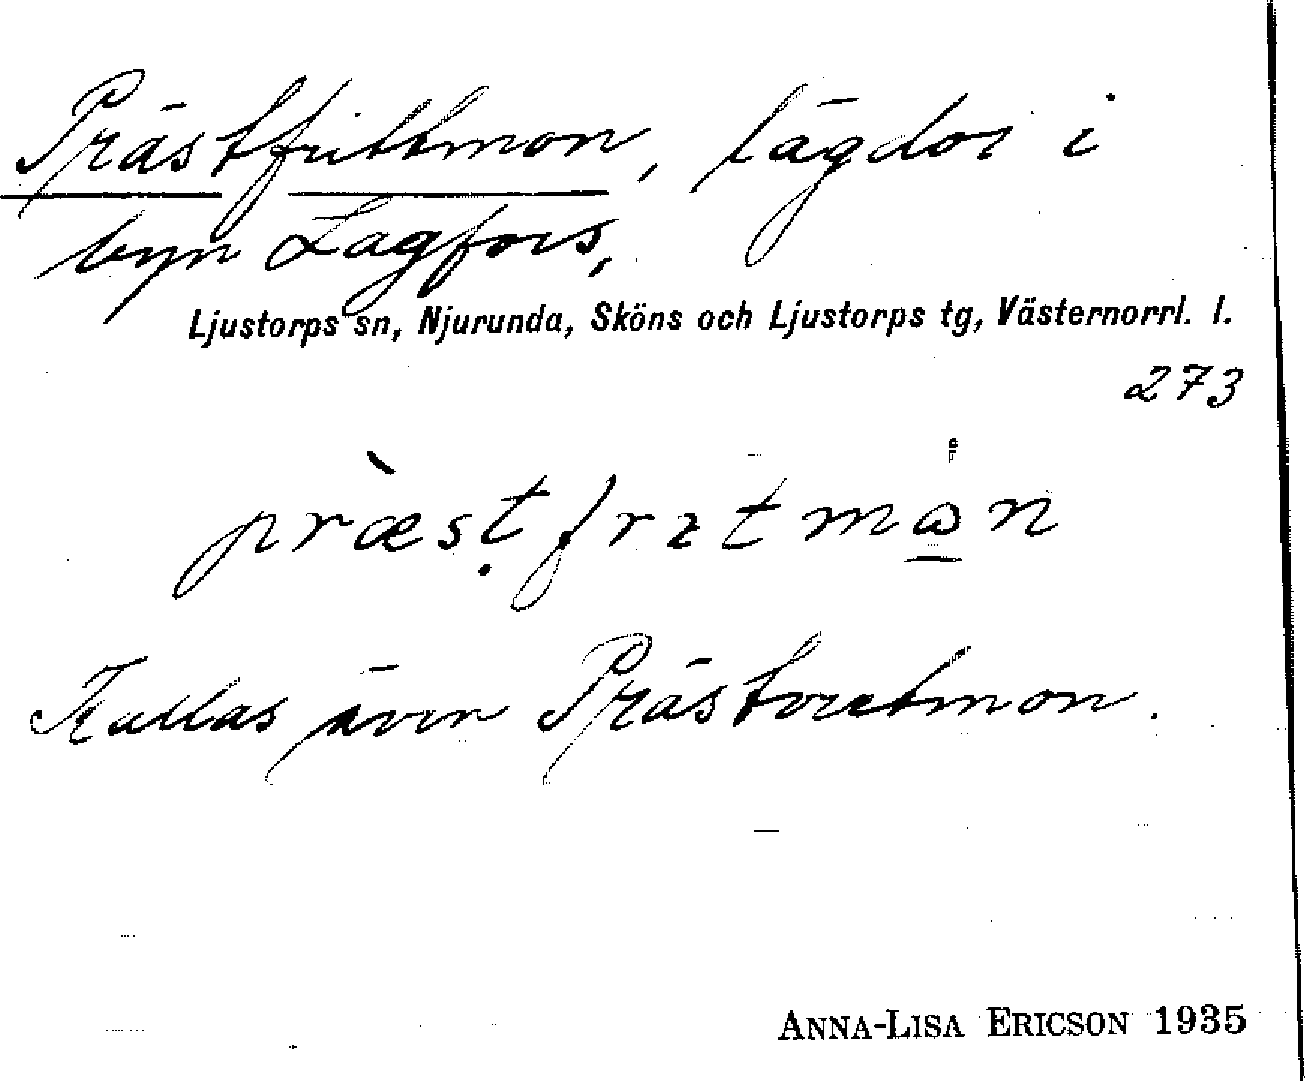 Prästfrittmon, lägdor i
byn Lagfors,
Ljustorps sn, Njurunda, Sköns och Ljustorps tg, Västernorrl. l.
273
Kallas även
ANNA-LISA ERICSON 1935